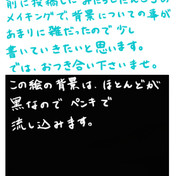 前に投稿したみたらしだんごの
メイキングで、背景についての事が
あまりに雑だったので少し
書いていきたいと思います。
では、おつき合い下さいませ。
この絵の背景は、ほとんどが
黒なので ペンキで
流し込みます。